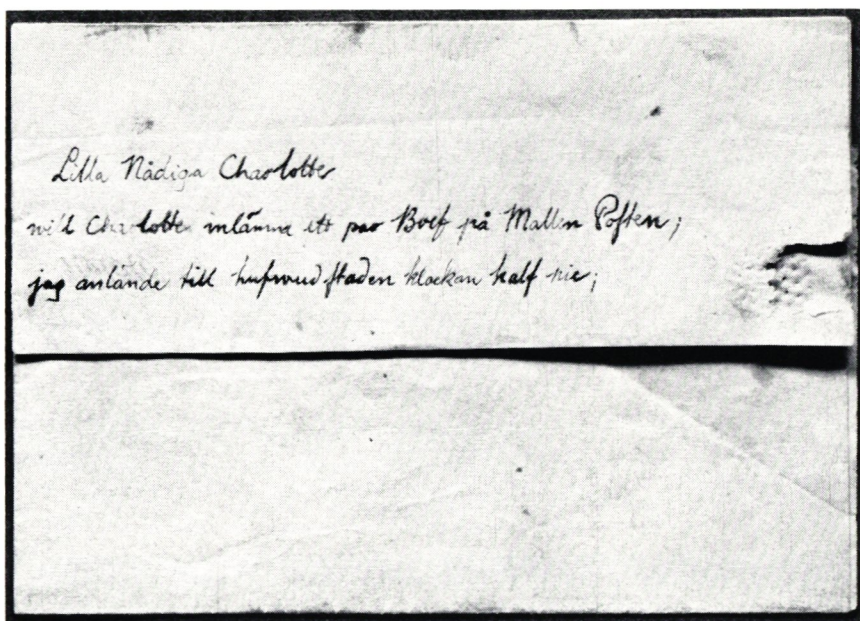 Lilla Nådiga Charlotte
will Charlotte inlämna ett par Bref på Mallen Posten;
jag anlände till hufwudstaden klockan half nie;